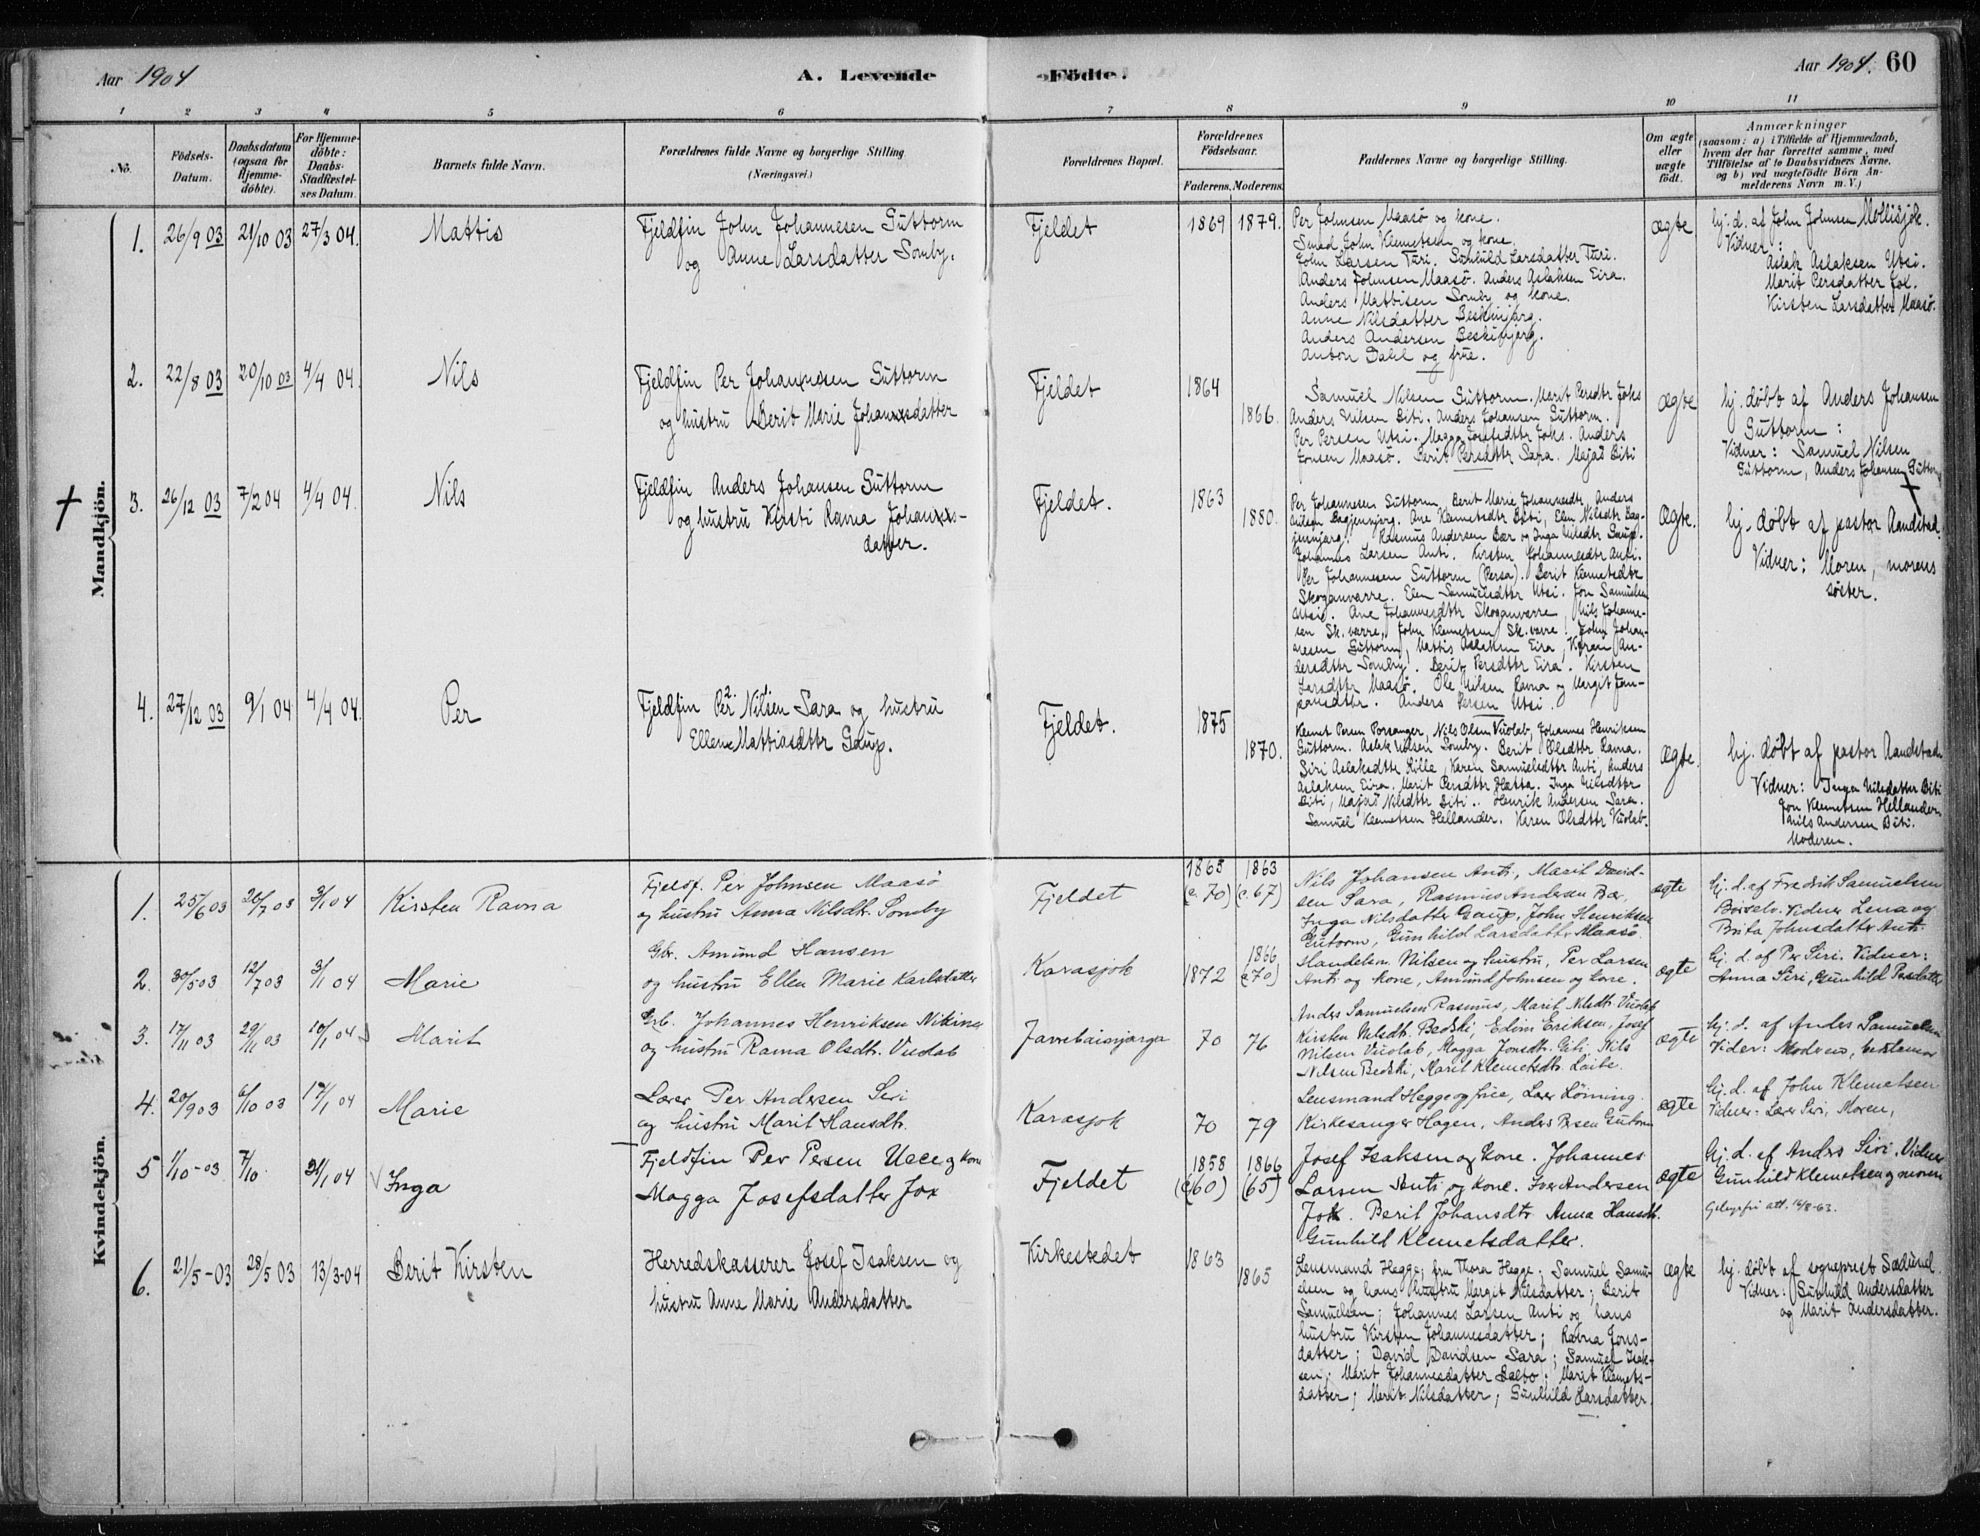 Aar 1904
A. Levende
Födte.
Aar 1904. 60
1 2 3 4 5 6 7 8 9 10 11
No.
Födsels-Datum.
Daabsdatum (ogsaa for Hjemme-döbte).
For Hjemme-döbte: Daabs-Stadfæstel-ses Datum.
Barnets fulde Navn.
Forældrenes fulde Navne og borgerlige Stilling
(Næringsvei.)
Forældrenes Bopæl.
Forældrenes Födselsaar.
Faderens. Moderens.
Faddernes Navne og borgerlige Stilling.
Om ægte eller uægte födt.
Anmærkninger
(saasom: a) i Tilfælde af Hjemmedaab, hvem der har forrettet samme, med Tilföielse af to Daabsvidners Navne, og b) ved uægtefödte Börn An-melderens Navn m. V.)
Mandkjön.
1. 26/9 03 21/10 03 27/3 04. Mattis
Fjeldfin John Johannesen Guttorm
og Anne Larsdatter Somby.
Fjeldet 1869 1879.
Per Johnsen Maasø og kone.
Smed John Klemetsen og kone.
John Larsen Turi. Gunhild Larsdatter Turi.
Anders Johnsen Maasø. Anders Aslaksen Eira.
Anders Mathisen Somby og kone.
Anne Nilsdatter Beskinjarg.
Anders Andersen Beskinjarg.
Anton Dahl og frue.
ægte
hj. d. af John Johnsen Mollisjok.
Vidner:
Aslak Aslaksen Utsi.
Marit Persdatter Jox.
Kirsten Larsdatter Maasø.
2. 22/8 03 20/10 03 4/4 04. Nils
Fjeldfin Per Johannesen Guttorm
og hustru Berit Marie Johannesdatter
Fjeldet 1864 1866.
Samuel Nilsen Guttorm. Marit Persdtr Joks
Anders Nilsen Biti. Anders Johansen Guttorm.
Per Persen Utsi. Magga Josefsdttr Joks. Anders
Jonsen Maasø. Berit Persdttr Sara. Majai Biti
ægte
hj. døbt af Anders Johansen
Guttorm:
Vidner: Samuel Nilsen
Guttorm, Anders Johansen Guttorm
3. 26/12 03 7/2 04 4/4 04. Nils
Fjeldfin Anders Johansen Guttorm
og hustru Kirsti Ravna Johannes-
datter.
Fjeldet. 1863 1880.
Per Johannesen Guttorm, Berit Marie Johannesdtr, Anders
Nilsen Bagjenjarg. Ane Klemetsdtr Biti, Elen Nilsdtr Bag-
jenjarg. Rasmus Andersen Bær og Inga Nilsdtr Gaup.
Johannes Larsen Anti. Kirsten Johannesdtr Anti.
Per Johannesen Guttorm (Persa). Berit Klemetsdtr
Skoganvarre. Elen Samuelsdttr Utsi. Jon Samuelsen
Utsi. Ane Johannesdttr Skoganvarre, Nils Johanne-
sen Sk. varre, John Klemetsen Sk. varre. John Johan-
nesen Guttorm, Mattis Aslaksen Eira, Karen An-
dersdttr Somby. Berit Persdttr Eira. Kirsten
Larsdttr Maasø. Ole Nilsen Ravna og Margit Jon-
Anders Persen Utsi.
Ægte.
hj. døbt af pastor Aandstad.
Vidner: Moren, morens
søster.
4. 27/12 03 9/1 04 4/4 04. Per
Fjeldfin Per Nilsen Sara og hustru
Ellen Mattiasdttr Gaup.
Fjeldet. 1875 1870.
Klemet Persen Porsanger, Nils Olsen Vuolab, Johannes Henriksen
Guttorm. Aslak Nilsen Somby. Berit Olsdttr Ravna.
Siri Aslaksdttr Kille, Karen Samuelsdttr Anti, Anders
Aslaksen Eira. Marit Persdttr Hætta. Inga Nilsdttr
Biti, Majai Nilsdttr Biti. Henrik Andersen Sara.
Samuel Klemetsen Hellander. Karen Olsdttr Vuolab.
Ægte.
hj. døbt af pastor Aandstad
Vidner: Inga Nilsdatter Biti
Jon Klemetsen Hellander
Nils Andersen Biti.
Moderen.
Kvindekjön.
1. 25/6 03 20/7 03 3/1 04 Kirsten Ravna
Fjeldf. Per Johnsen Maasø
og hustru Anna Nilsdtr. Somby
Fjeldet 1865 (c. 70) 1863 (c. 67)
Nils Johansen Anti, Marit David-
sen Sara, Rasmus Andersen Bær,
Inga Nilsdatter Gaup, John Henriksen
Gutorm, Gunhild Larsdatter Maasø
ægte
hj. d. af Fredrik Samuelsen
Børselv. Vidner Lena og
Brita Johnsdatter Anti.
2. 30/5 03 12/7 03 3/1 04 Marie
Gbr. Amund Hansen
og hustru Ellen Marie Karlsdatter
Karasjok 1872 1866 (c 70)
Handelsm. Nilsen og hustru, Per Larsen
Anti og kone, Amund Johnsen og kone.
ægte
hj. d. af Per Siri. Vidner:
Anna Siri, Gunhild Persdatter
3. 17/11 03 29/11 03 10/1 04 Marit
Grb. Johannes Henriksen Nikinas
og hustru Ravna Olsdtr. Vuolab
Javrebainjarga 70 76
Anders Samuelsen Rasmus, Marit Nilsdtr. Vuolab
Kirsten Nilsdtr. Bedski, Edvin Eriksen, Josef
Nilsen Vuolab, Magga Jonsdtr. Biti. Nils
Nilsen Bedski, Marit Klemetsdtr. Laibe.
ægte
hj. d. af Anders Samuelsen
Vidner: Modren, bedstemor
4. 20/9 03 6/10 03 17/1 04 Marie
Lærer Per Andersen Siri
og hustru Marit Hansdtr.
Karasjok 70 79
Lensmand Hegge og frue, Lærer Lørning
Kirkesanger Hagen, Anders Persen Gutorm
ægte
hj. d. af John Klemetsen
Vidner: Lærer Siri, Moren,
5 1/10-03 7/10 24/1 04 Inga
Fjeldfin Per Persen Ucce og kone
Magga Josefsdatter Jox
Fjeldet 1858 (c 60) 1866 (65)
Josef Isaksen og kone. Johannes
Larsen Anti og kone. Iver Andersen
Jok. Berit Johansdtr Anna Hansdtr.
Gunhild Klemetsdatter.
ægte
hj. d. af Anders Siri. Vidner
Gunhild Klemetsen og moren
Gebyrfri att. 14/8-63.
6. 21/5-03 28/5 03 13/3-04 Berit Kirsten
Herredskasserer Josef Isaksen og
hustru Anne Marie Andersdatter
Kirkestedet 1863 1865
Lensmand Hegge; fru Thora Hegge; Samuel Samu-
elsen og hans hustru Margit Nilsdatter; Berit
Samuelsen; Johannes Larsen Anti og hans
hustru Kirsten Johannesdatter; Ravna Jons-
datter; David Davidsen Sara; Samuel Isak-
sen; Marit Johannesdatter Balto; Marit Klemets-
datter; Marit Nilsdatter; Gunhild Larsdatter.
ægte
hj. døbt af sogneprest Sædund
Vidner: Gunhild Andersdatter
og Marit Andersdatter.